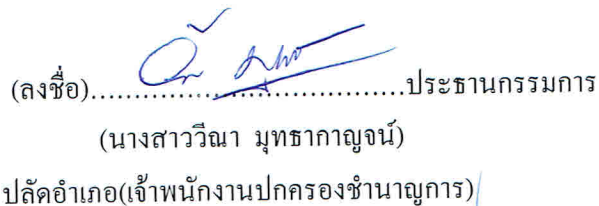 (ลงชื่อ)....................................ประธานกรรมการ
(นางสาววีณา มุทธากาญจน์)
ปลัดอำเภอ(เจ้าพนักงานปกครองชำนาญการ)